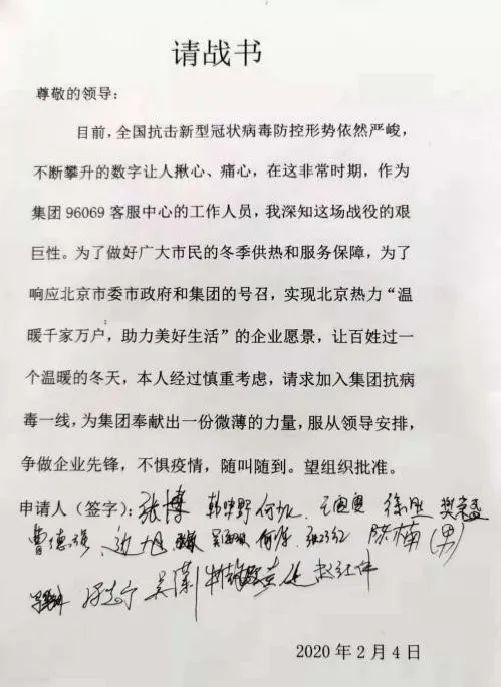 请战书
尊敬的领导：
目前，全国抗击新型冠状病毒防控形势依然严峻，
不断攀升的数字让人揪心、痛心，在这非常时期，作为
集团 96069 客服中心的工作人员，我深知这场战役的艰
巨性。为了做好广大市民的冬季供热和服务保障，为了
响应北京市委市政府和集团的号召，实现北京热力“温
暖千家万户，助力美好生活”的企业愿景，让百姓过一
个温暖的冬天，本人经过慎重考虑，请求加入集团抗病
毒一线，为集团奉献出一份微薄的力量，服从领导安排，
争做企业先锋，不惧疫情，随叫随到。望组织批准。
申请人（签字）：张博
曹德强、边旭 陈楠（男）
吴潇
2020 年 2 月 4 日